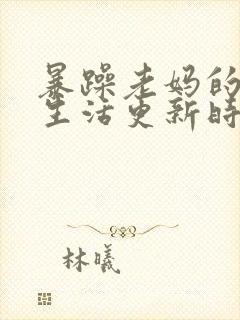 暴躁老妈的
生活更新时
林曦